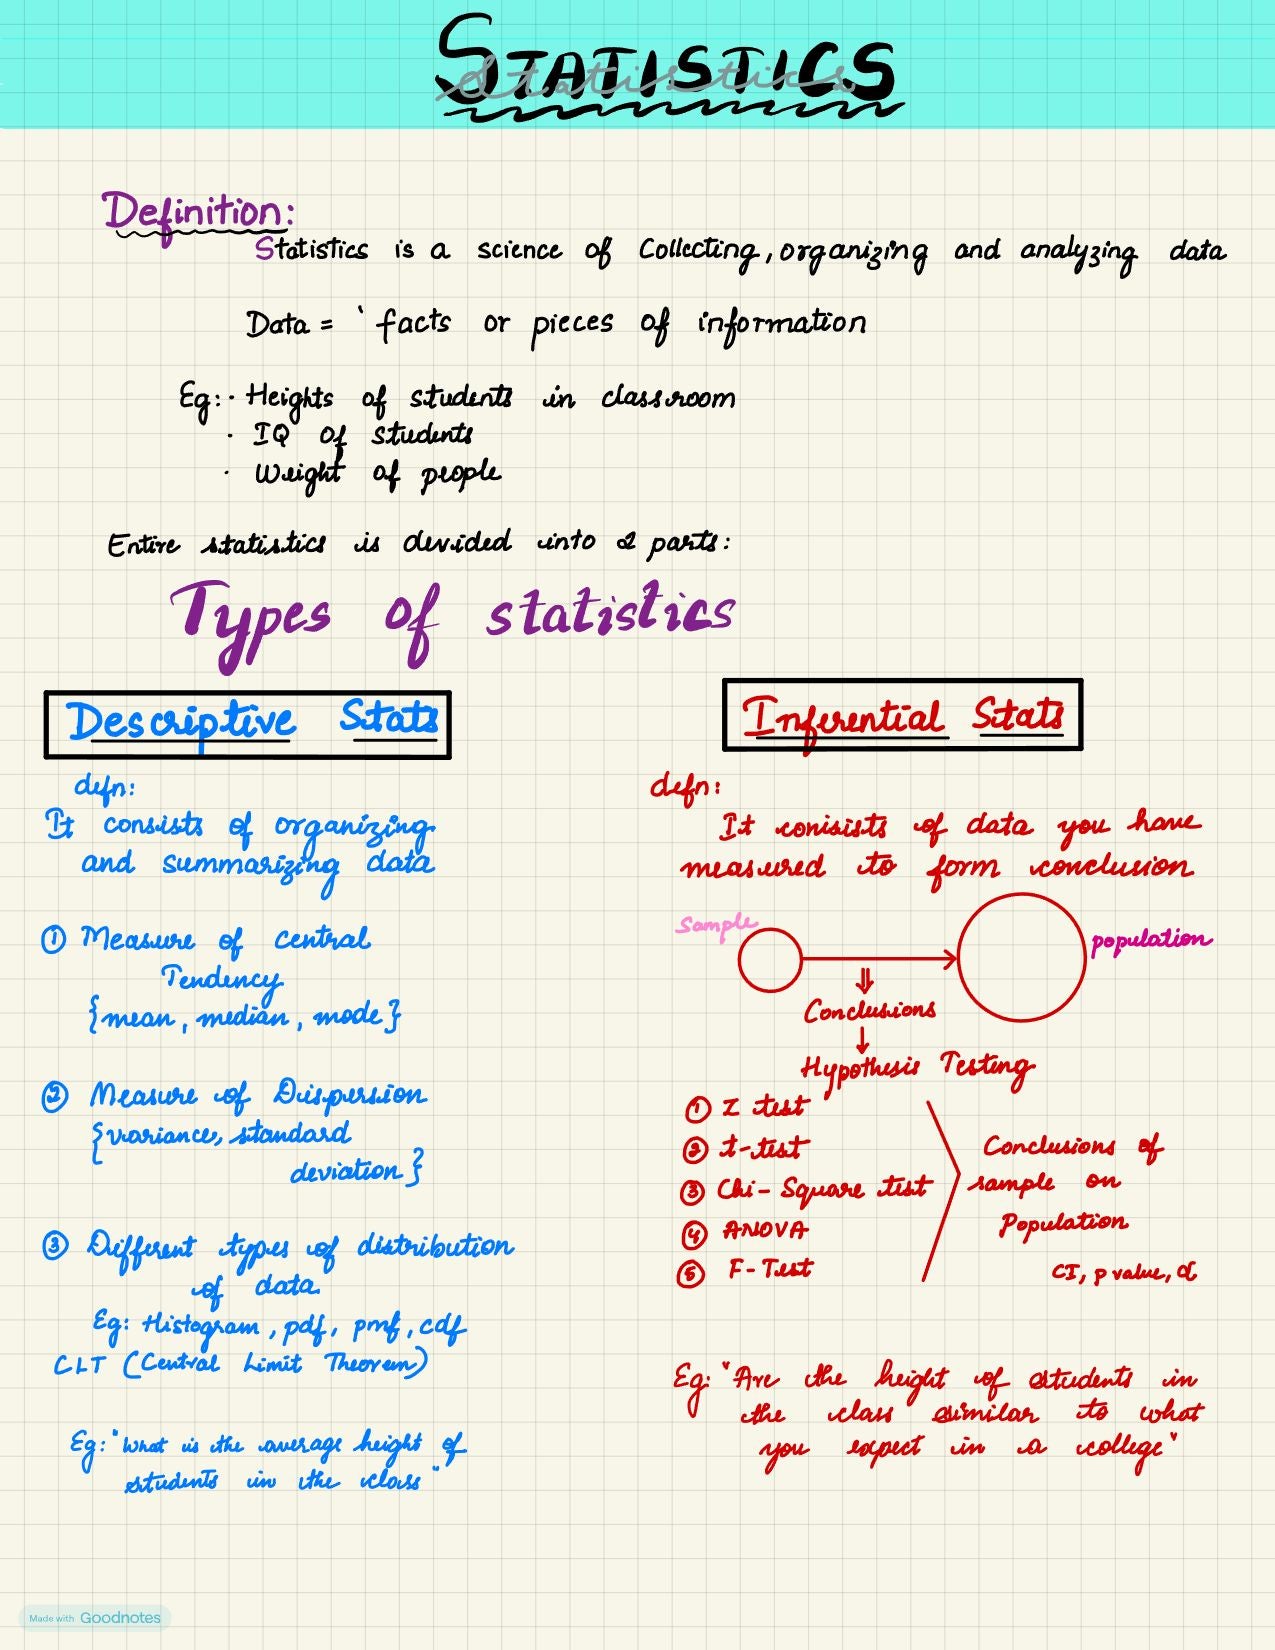 STATISTICS
Statistics
Definition:
Statistics is a science of Collecting, organizing and analyzing data
Data = ' facts or pieces of information
Eg: · Heights of students in classroom
· IQ of students
· Weight of people
Entire statistics is devided into 2 parts:
Types of statistics
Descriptive Stats
defn:
It consists of organizing
and summarizing data
① Measure of central
Tendency
{mean, median, mode}
② Measure of Dispersion
{variance, standard
deviation}
③ Different types of distribution
of data
Eg: Histogram, pdf, pmf, cdf
CLT (Central Limit Theorem)
Eg: "What is the average height of
students in the class"
Inferential Stats
defn:
It conisists of data you have
measured to form conclusion
Sample
population
Conclusions
Hypothesis Testing
① Z test
② t-test
③ Chi-Square test
④ ANOVA
⑤ F-Test
Conclusions of
sample on
Population
CI, p value, α
Eg: "Are the height of students in
the class similar to what
you expect in a college"
Made with Goodnotes